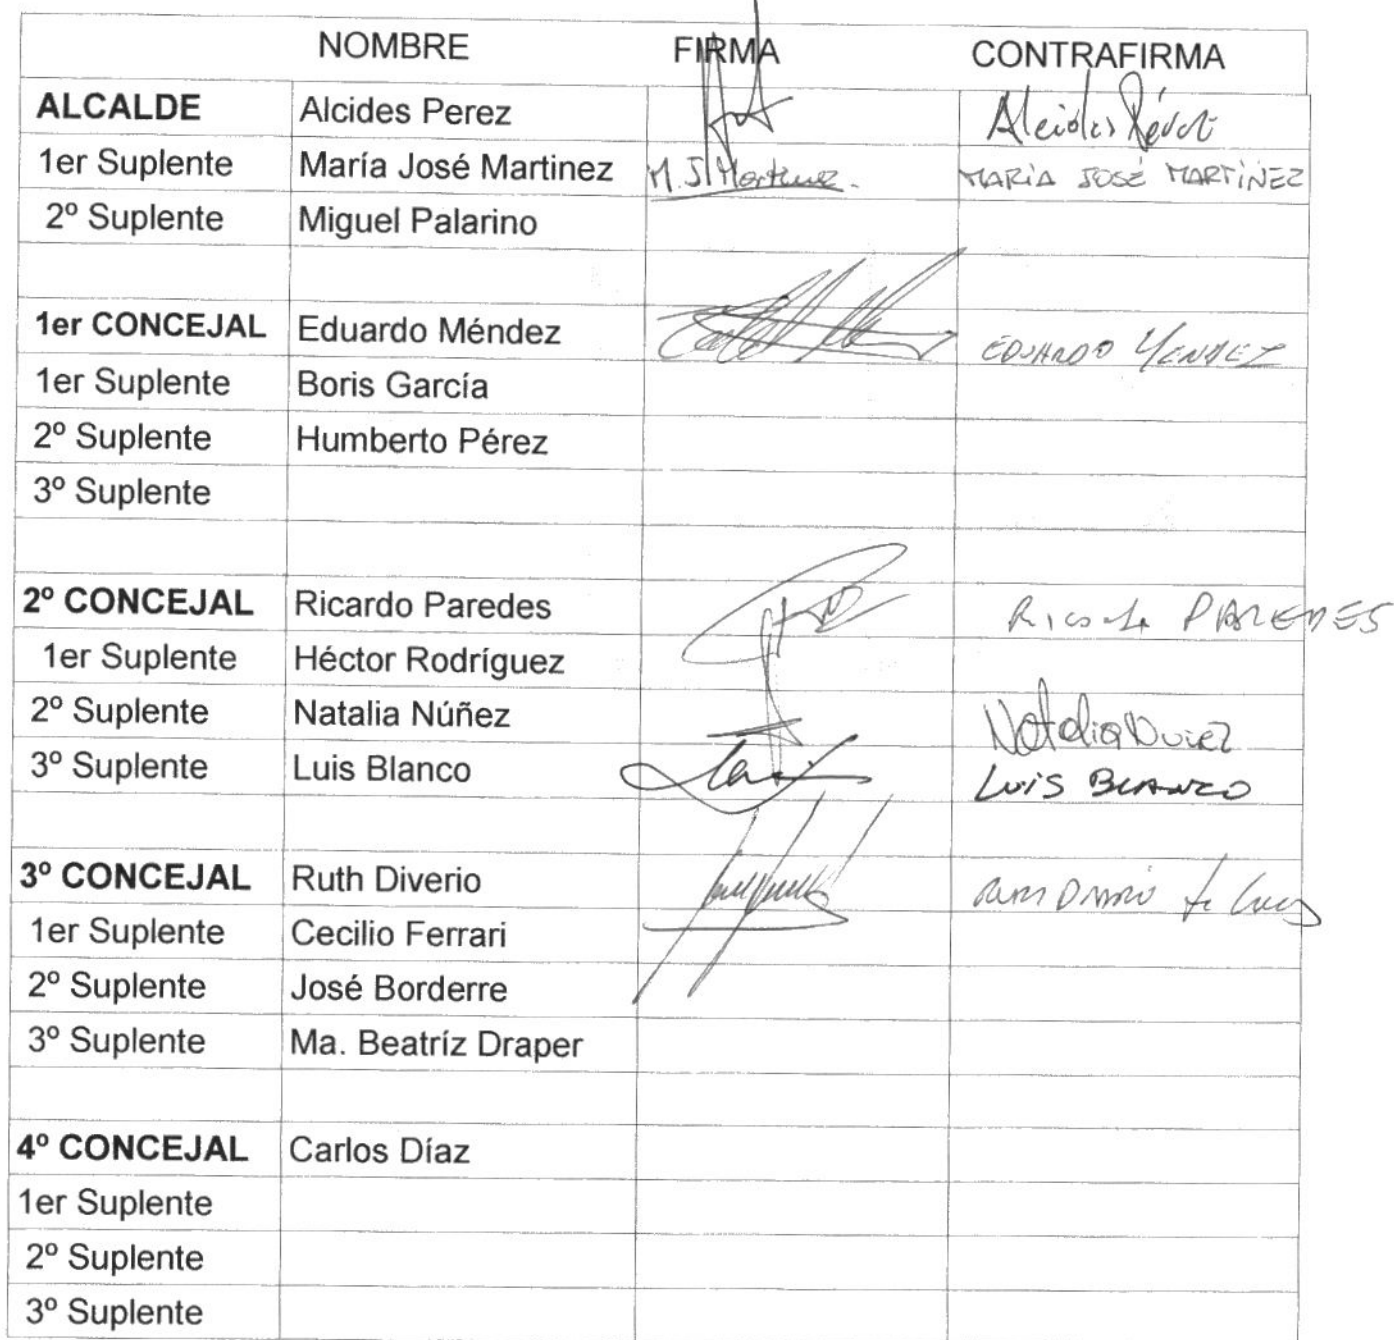 NOMBRE FIRMA CONTRAFIRMA
ALCALDE Alcides Perez Alcides Pérez
1er Suplente María José Martinez M. J. Martinez. MARIA JOSÉ MARTÍNEZ
2º Suplente Miguel Palarino
1er CONCEJAL Eduardo Méndez EDUARDO MENDEZ
1er Suplente Boris García
2º Suplente Humberto Pérez
3º Suplente
2º CONCEJAL Ricardo Paredes Ricardo PAREDES
1er Suplente Héctor Rodríguez
2º Suplente Natalia Núñez Natalia Nuñez
3º Suplente Luis Blanco LUIS BLANCO
3º CONCEJAL Ruth Diverio
1er Suplente Cecilio Ferrari
2º Suplente José Borderre
3º Suplente Ma. Beatríz Draper
4º CONCEJAL Carlos Díaz
1er Suplente
2º Suplente
3º Suplente